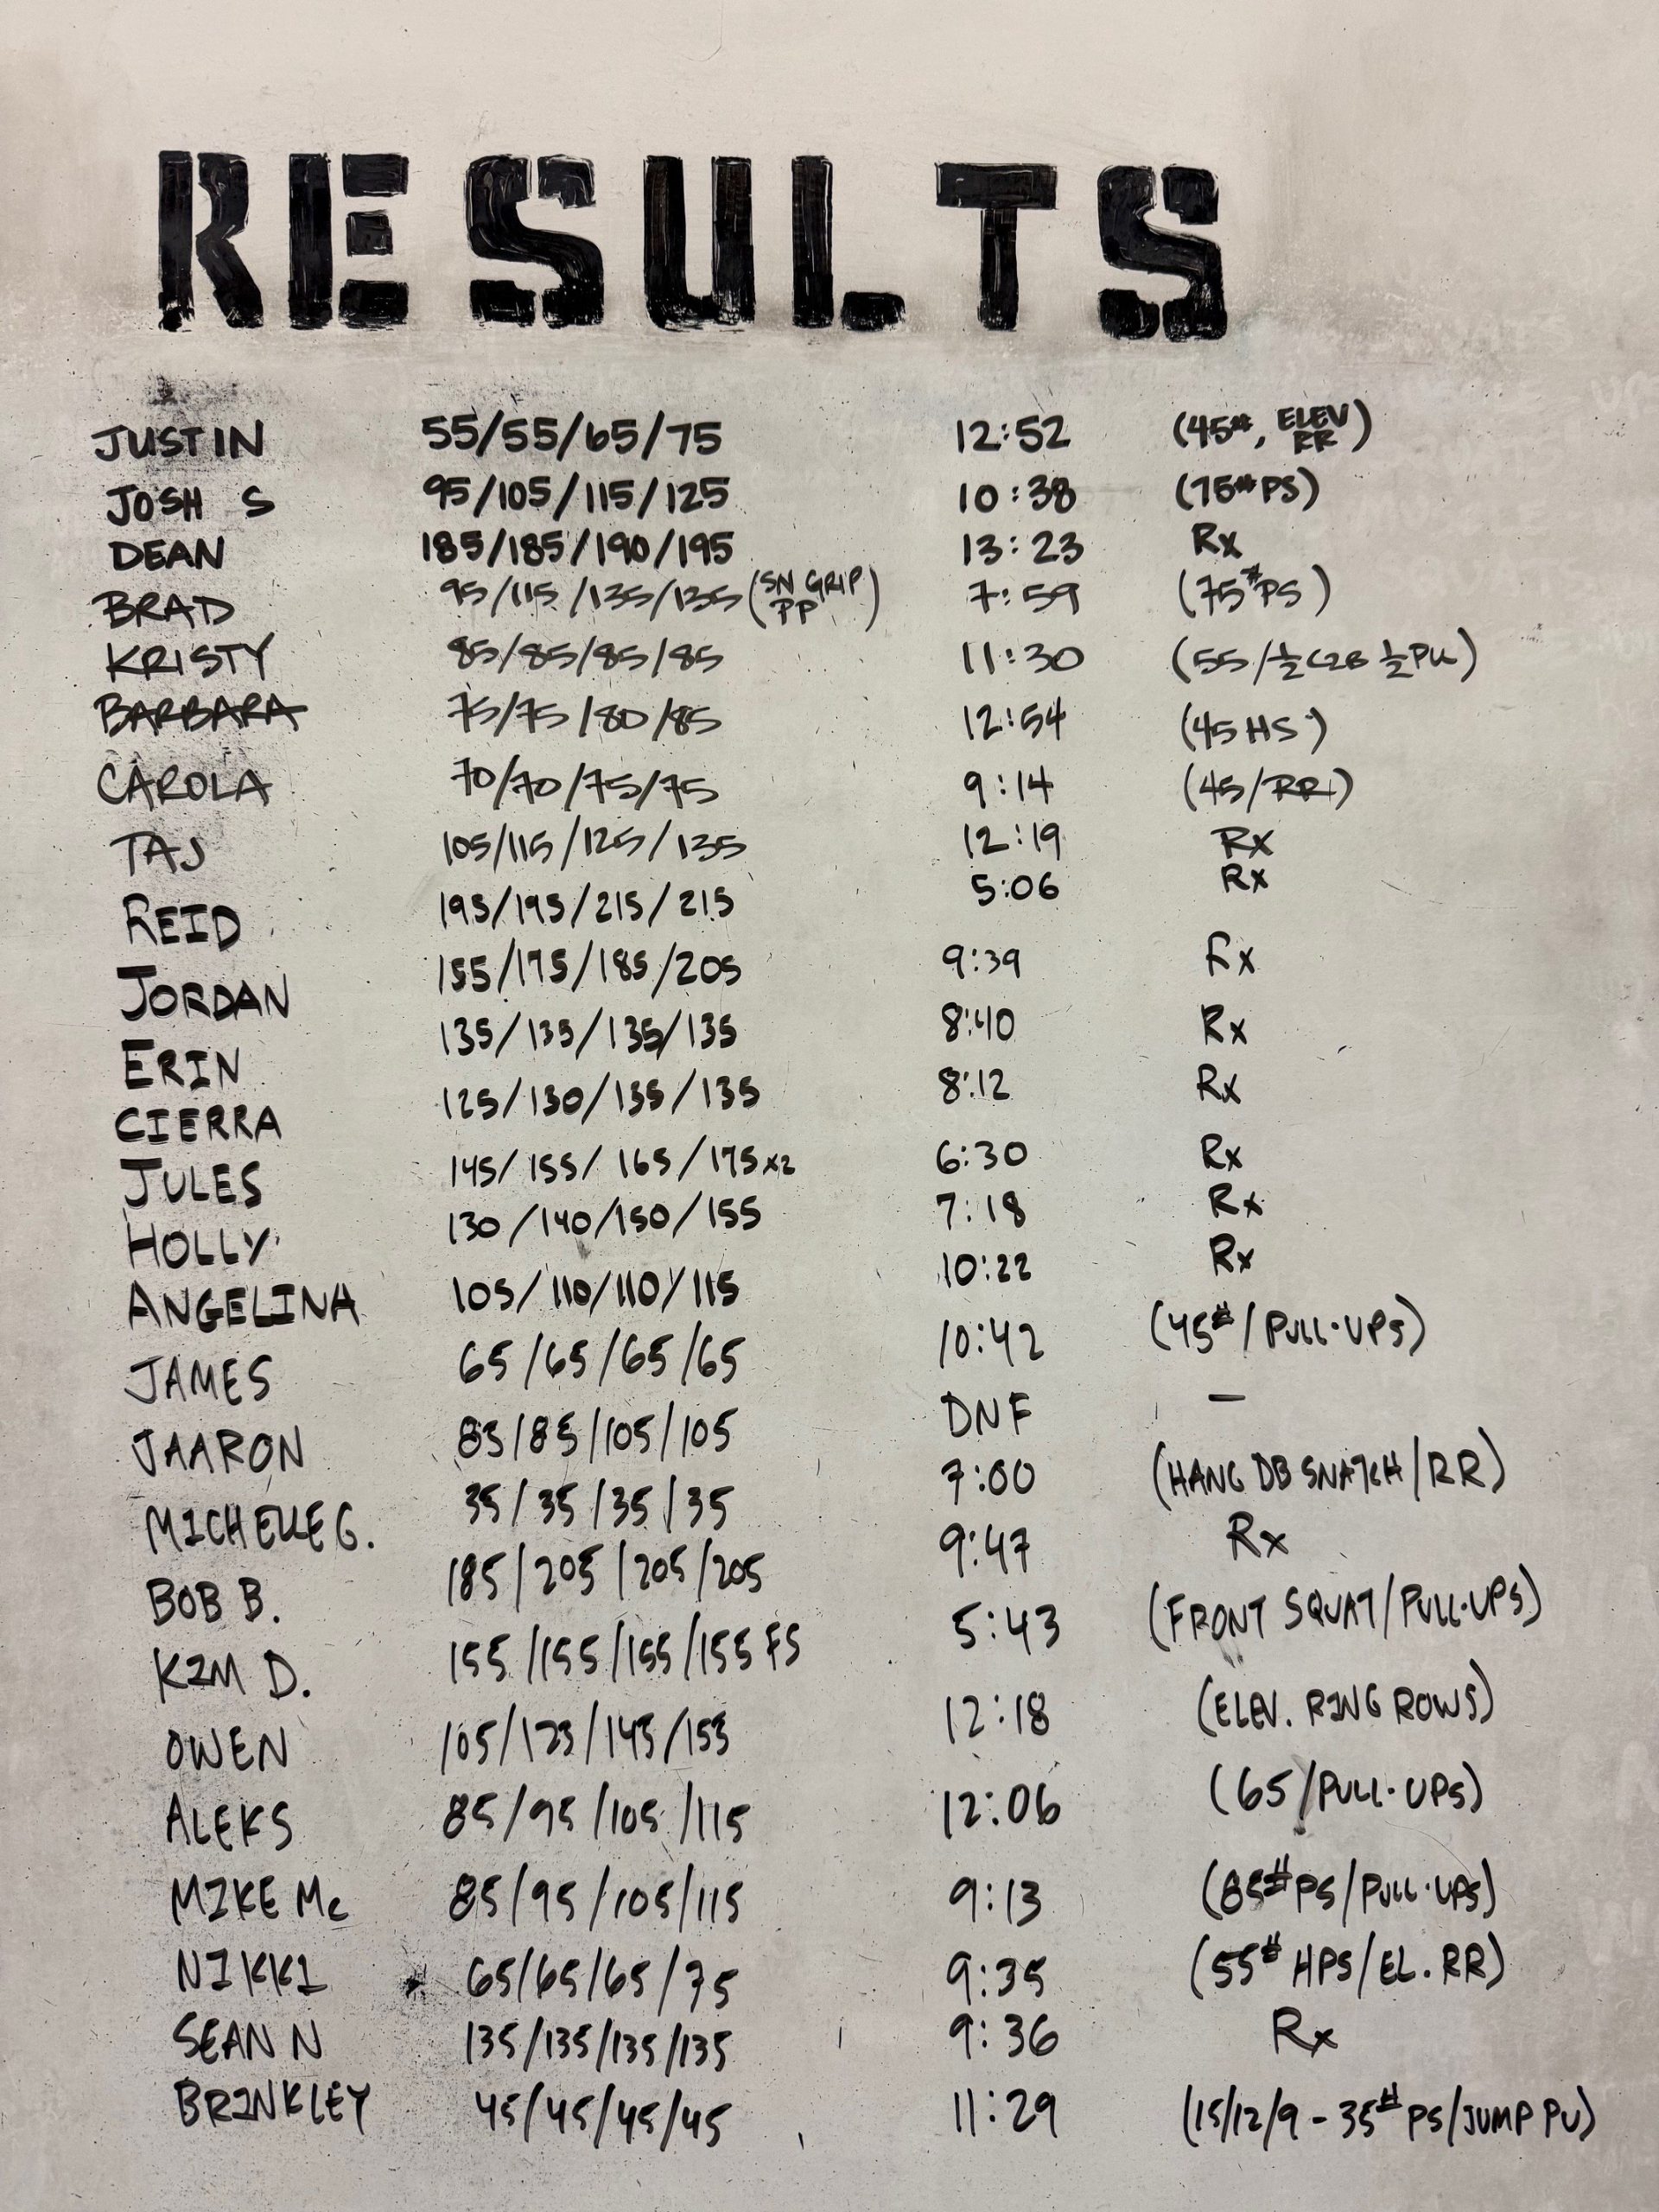 RESULTS
JUSTIN 55/55/65/75 12:52 (45#, ELEV RR)
JOSH S 95/105/115/125 10:38 (75# PS)
DEAN 185/185/190/195 13:23 Rx
BRAD 95/115/135/135 (SN GRIP PP) 7:59 (75# PS)
KRISTY 85/85/85/85 11:30 (55/½ C2B ½ PU)
BARBARA 75/75/80/85 12:54 (45 HS)
CAROLA 70/70/75/75 9:14 (45/RR)
TAJ 105/115/125/135 12:19 Rx
REID 195/195/215/215 5:06 Rx
JORDAN 155/175/185/205 9:39 Rx
ERIN 135/135/135/135 8:40 Rx
CIERRA 125/130/135/135 8:12 Rx
JULES 145/155/165/175 x2 6:30 Rx
HOLLY 130/140/150/155 7:18 Rx
ANGELINA 105/110/110/115 10:22 Rx
JAMES 65/65/65/65 10:42 (45#/PULL-UPS)
JAARON 85/85/105/105 DNF —
MICHELLE G. 35/35/35/35 7:00 (HANG DB SNATCH/RR)
BOB B. 185/205/205/205 9:47 Rx
KIM D. 155/155/155/155 FS 5:43 (FRONT SQUAT/PULL-UPS)
OWEN 105/125/145/155 12:18 (ELEV. RING ROWS)
ALEKS 85/95/105/115 12:06 (65/PULL-UPS)
MIKE Mc 85/95/105/115 9:13 (85# PS/PULL-UPS)
NIKKI 65/65/65/75 9:35 (55# HPS/EL. RR)
SEAN N 135/135/135/135 9:36 Rx
BRINKLEY 45/45/45/45 11:29 (15/12/9 - 35# PS/JUMP PU)